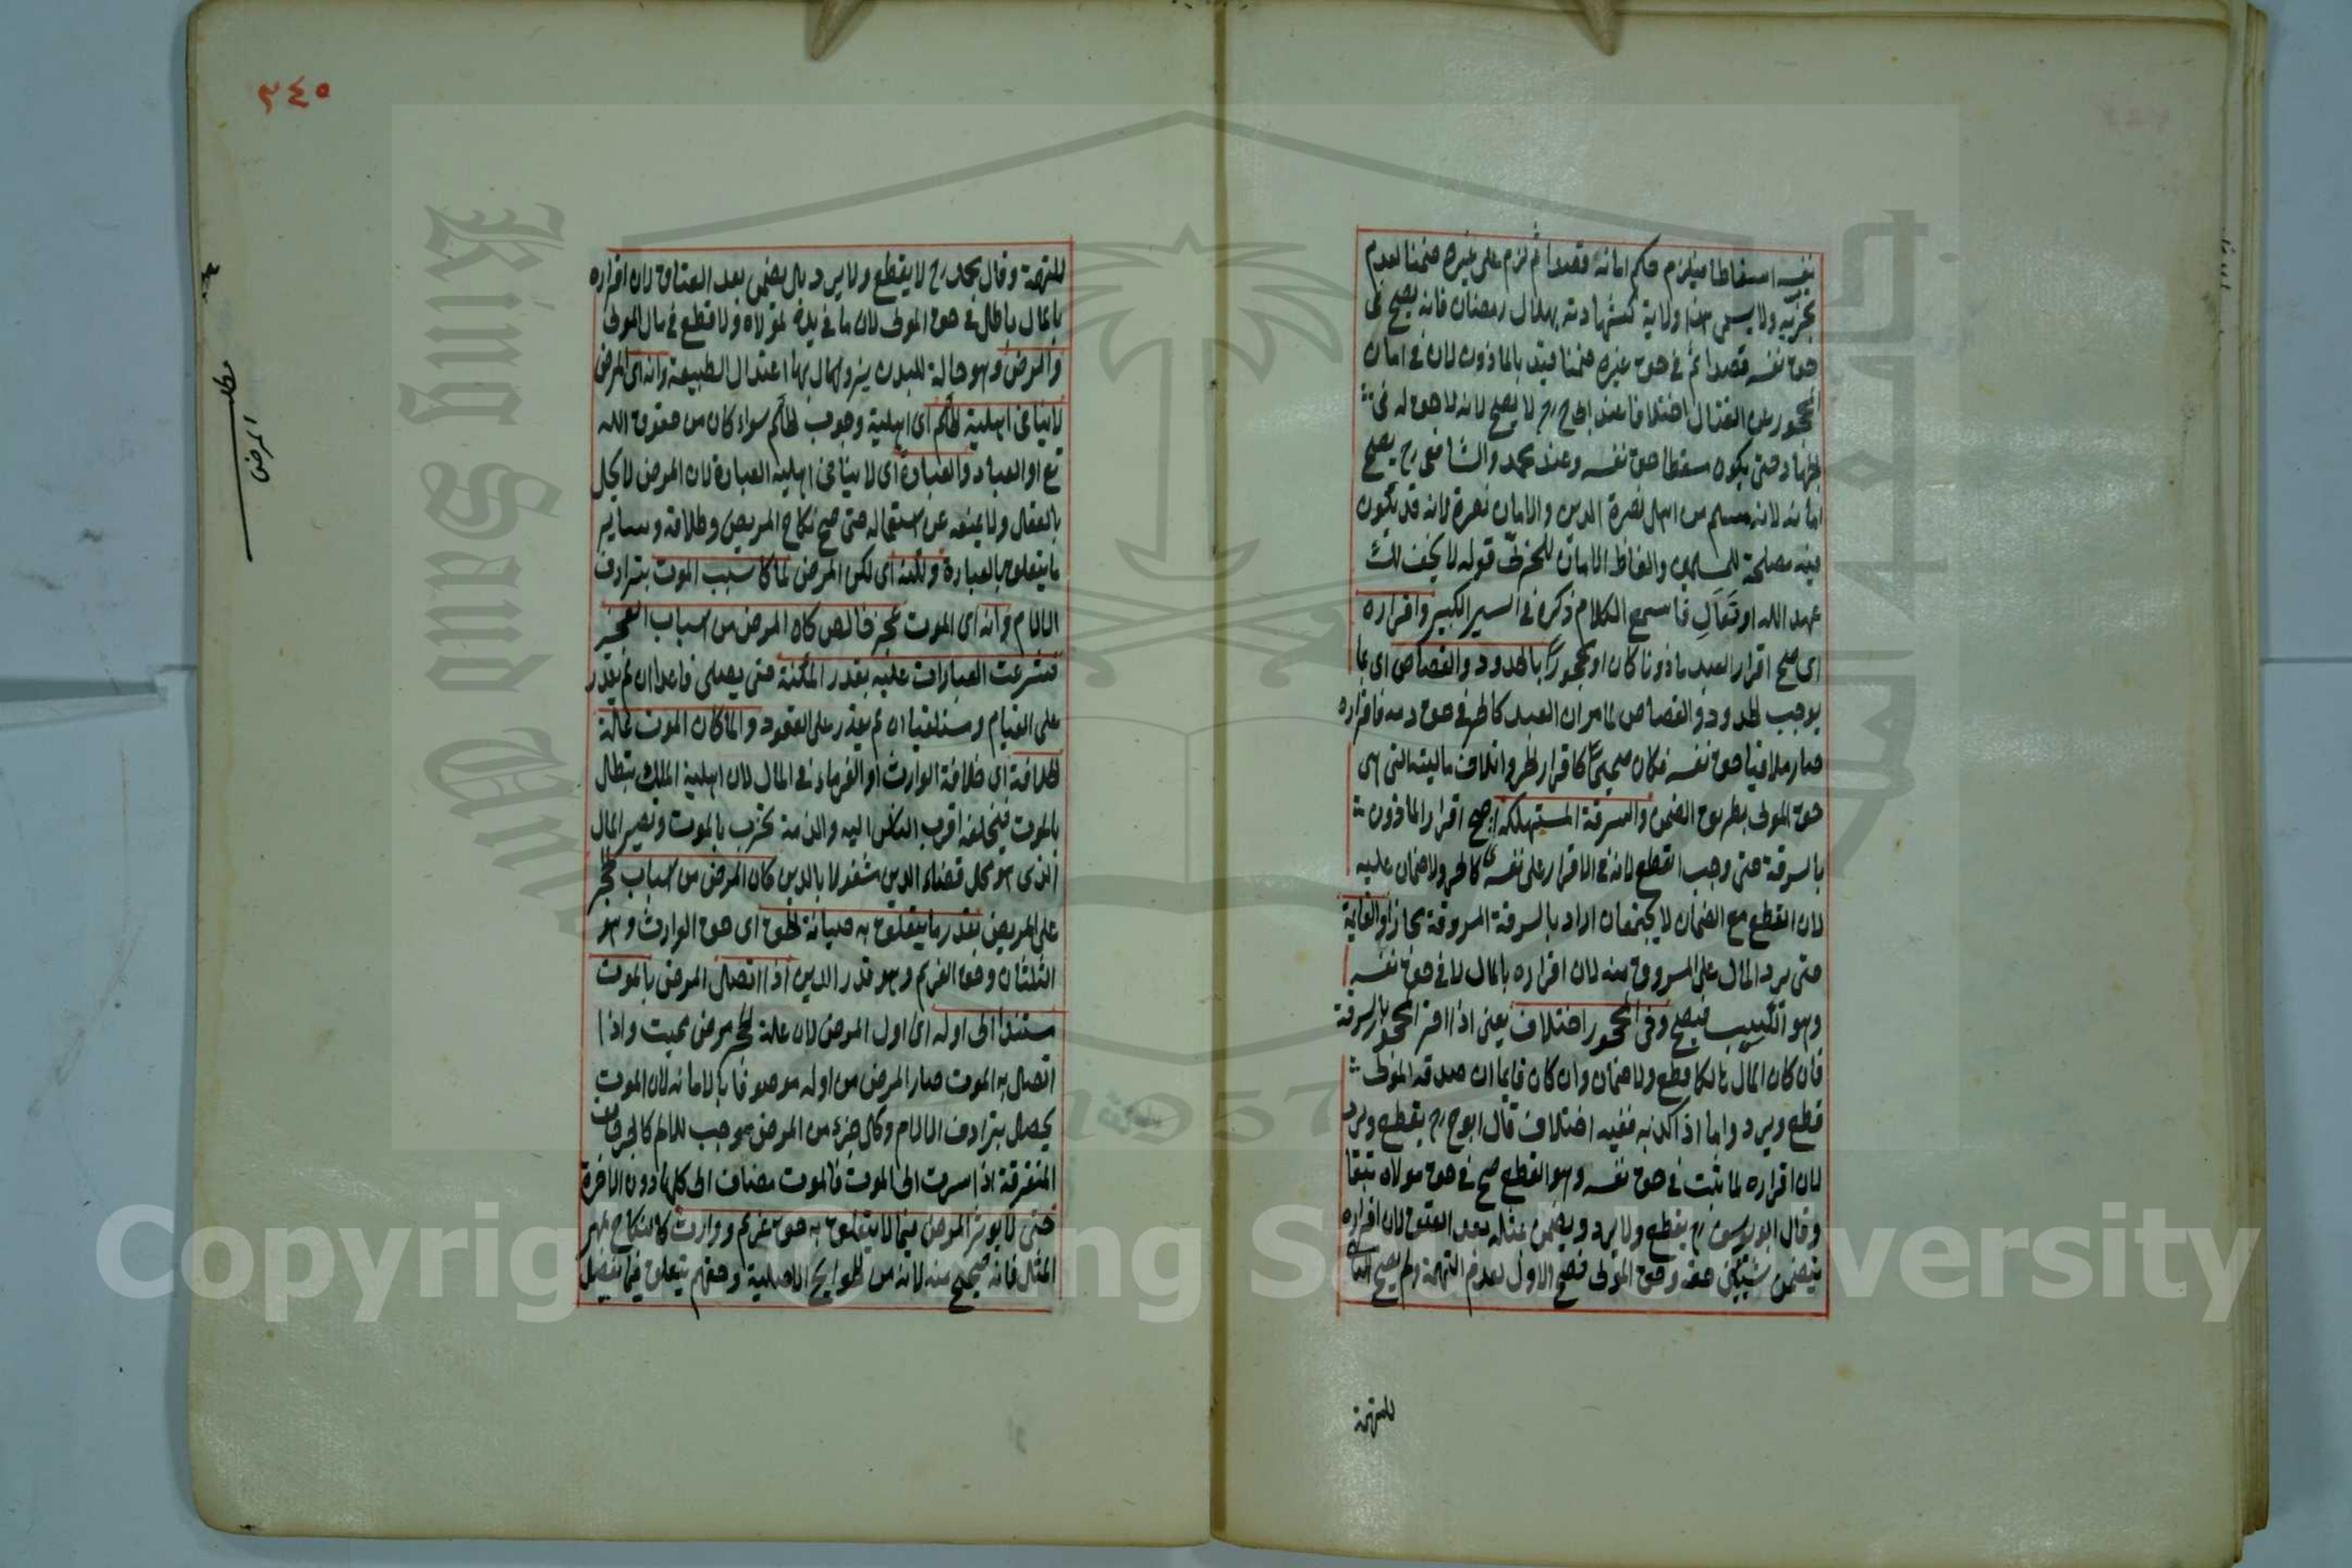 نفسه اسقاطا فيلزم حكم امانه قصدا ثم لزم على غيره ضمنا لعدم
تجزيه ولا يسمى هذا ولاية كشهادته بهلال رمضان فانه يصح في
حق نفسه قصدا ثم في حق غيره ضمنا قيد بالماذون لان في امان
المحجور عن القتال اختلافا عند ابي ح رح لا يصح لانه لا حق له في
الجهاد حتى يكون مسقطا حق نفسه وعند محمد والشافعي رح يصح
امانه لانه مسلم من اهل نصرة الدين والامان نصرة لانه قد يكون
فيه مصلحة للمسلمين والفاظ الامان للحربي قوله لا تخف لك
عهد الله او تعال فاسمع الكلام ذكره في السير الكبير واقراره
اى صح اقرار العبد ماذونا كان او محجورا بالحدود والقصاص اى بما
يوجب الحدود والقصاص لما مر ان العبد كالحر في حق دمه فاقراره
صار ملاقيا حق نفسه فكان صحيحا كاقرار الحر واتلاف ماليته التى هى
حق المولى بطريق الضمن والسرقة المستهلكة اى صح اقرار الماذون
بالسرقة حتى وجب القطع لانه في الاقرار على نفسه كالحر ولا ضمان عليه
لان القطع مع الضمان لا يجتمعان اراد بالسرقة المسروقة مجازا والقايمة
حتى يرد المال على المسروق منه لان اقراره بالمال لاقى حق نفسه
وهو الكسب فيصح وفي المحجور اختلاف يعنى اذا اقر المحجور بالسرقة
فان كان المال هالكا قطع ولا ضمان وان كان قايما ان صدقه المولى
قطع ويرد واما اذا كذبه ففيه اختلاف قال ابو ح رح يقطع ويرد
لان اقراره لما ثبت في حق نفسه وهو القطع صح في حق مولاه تبعا
وقال ابو يوسف رح يقطع ولا يرد ويضمن مثله بعد العتق لان اقراره
يتضمن شيئين حقه وحق المولى فصح الاول لعدم التهمة ولم يصح الثانى
للتهمة
٢٤٥
للتهمة وقال محمد رح لا يقطع ولا يرد بل يضمن بعد العتاق لان اقراره
بالمال باطل في حق المولى لان ما في يده لمولاه ولا قطع في مال المولى
والمرض وهو حالة للبدن يزول بها اعتدال الطبيعة وانه اى المرض
لا ينافى اهلية الحكم اى اهلية وجوب الحكم سواء كان من حقوق الله
تع او العباد والعبادة اى لا ينافى اهلية العبادة لان المرض لا يخل
بالعقل ولا يمنعه عن استعماله حتى صح نكاح المريض وطلاقه وساير
ما يتعلق بالعبارة ولكنه اى لكن المرض لما كان سبب الموت بترادف
الالام وانه اى الموت عجز خالص كان المرض من اسباب العجز
فشرعت العبادات عليه بقدر المكنة حتى يصلى قاعدا ان لم يقدر
على القيام ومستلقيا ان لم يقدر على القعود ولما كان الموت علة
الخلافة اى خلافة الوارث او الغرماء في المال لان اهلية الملك تبطل
بالموت فيخلفه اقرب الناس اليه والذمة تخرب بالموت ويصير المال
الذى هو محل قضاء الدين مشغولا بالدين كان المرض من اسباب الحجر
على المريض بقدر ما يتعلق به صيانة الحق اى حق الوارث وهو
الثلثان وحق الغريم وهو قدر الدين اذا اتصل المرض بالموت
مستندا الى اوله اى اول المرض لان علة الحجر مرض مميت واذا
اتصل به الموت صار المرض من اوله موصوفا بالاماتة لان الموت
يحصل بترادف الالام وكل جزء من المرض موجب للالم كالجراحات
المتفرقة اذا سرت الى الموت فالموت مضاف الى كلها دون الاخرة
حتى لا يوثر المرض فيما لا يتعلق به حق غريم ووارث كالنكاح بمهر
المثل فانه صحيح منه لانه من الحوايج الاصلية وحقهم يتعلق فيما يفضل
مطلب
المرض